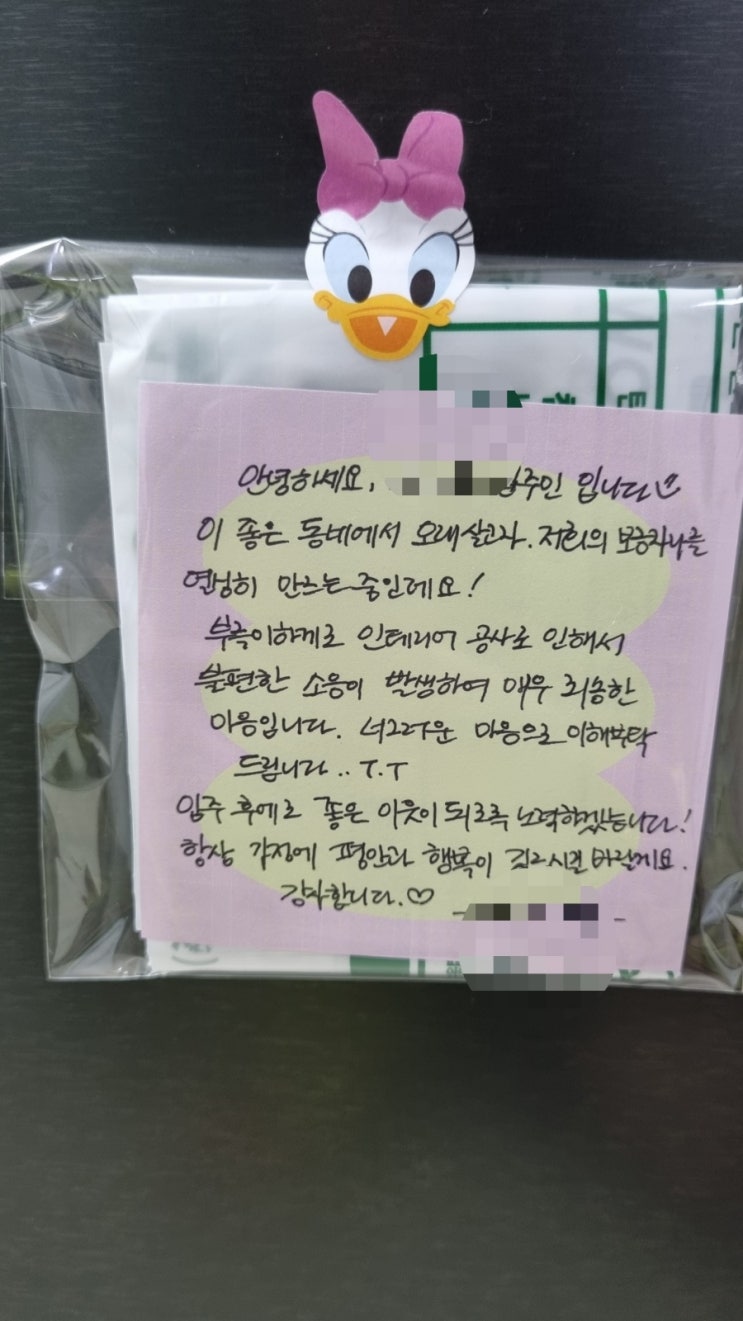 안녕하세요, 입주인 입니다
이 좋은 동네에서 오래살고자. 저희의 보금자리를
열심히 만드는 중인데요!
부득이하게도 인테리어 공사로 인해서
불편한 소음이 발생하여 매우 죄송한
마음입니다. 너그러운 마음으로 이해부탁
드립니다.. T.T
입주 후에도 좋은 이웃이 되도록 노력하겠습니다!
항상 가정에 평안과 행복이 깃드시길 바랄게요.
감사합니다.♡